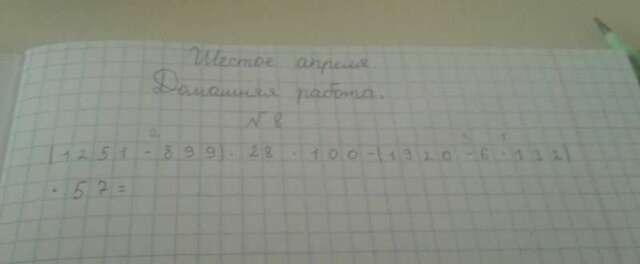 Шестое апреля.
Домашняя работа.
№ 8
(1251-899)·28·100-(1920-6·132)
·57=